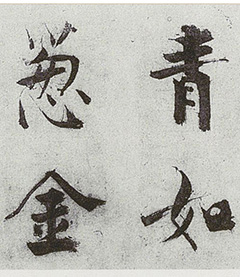 青如
葱金